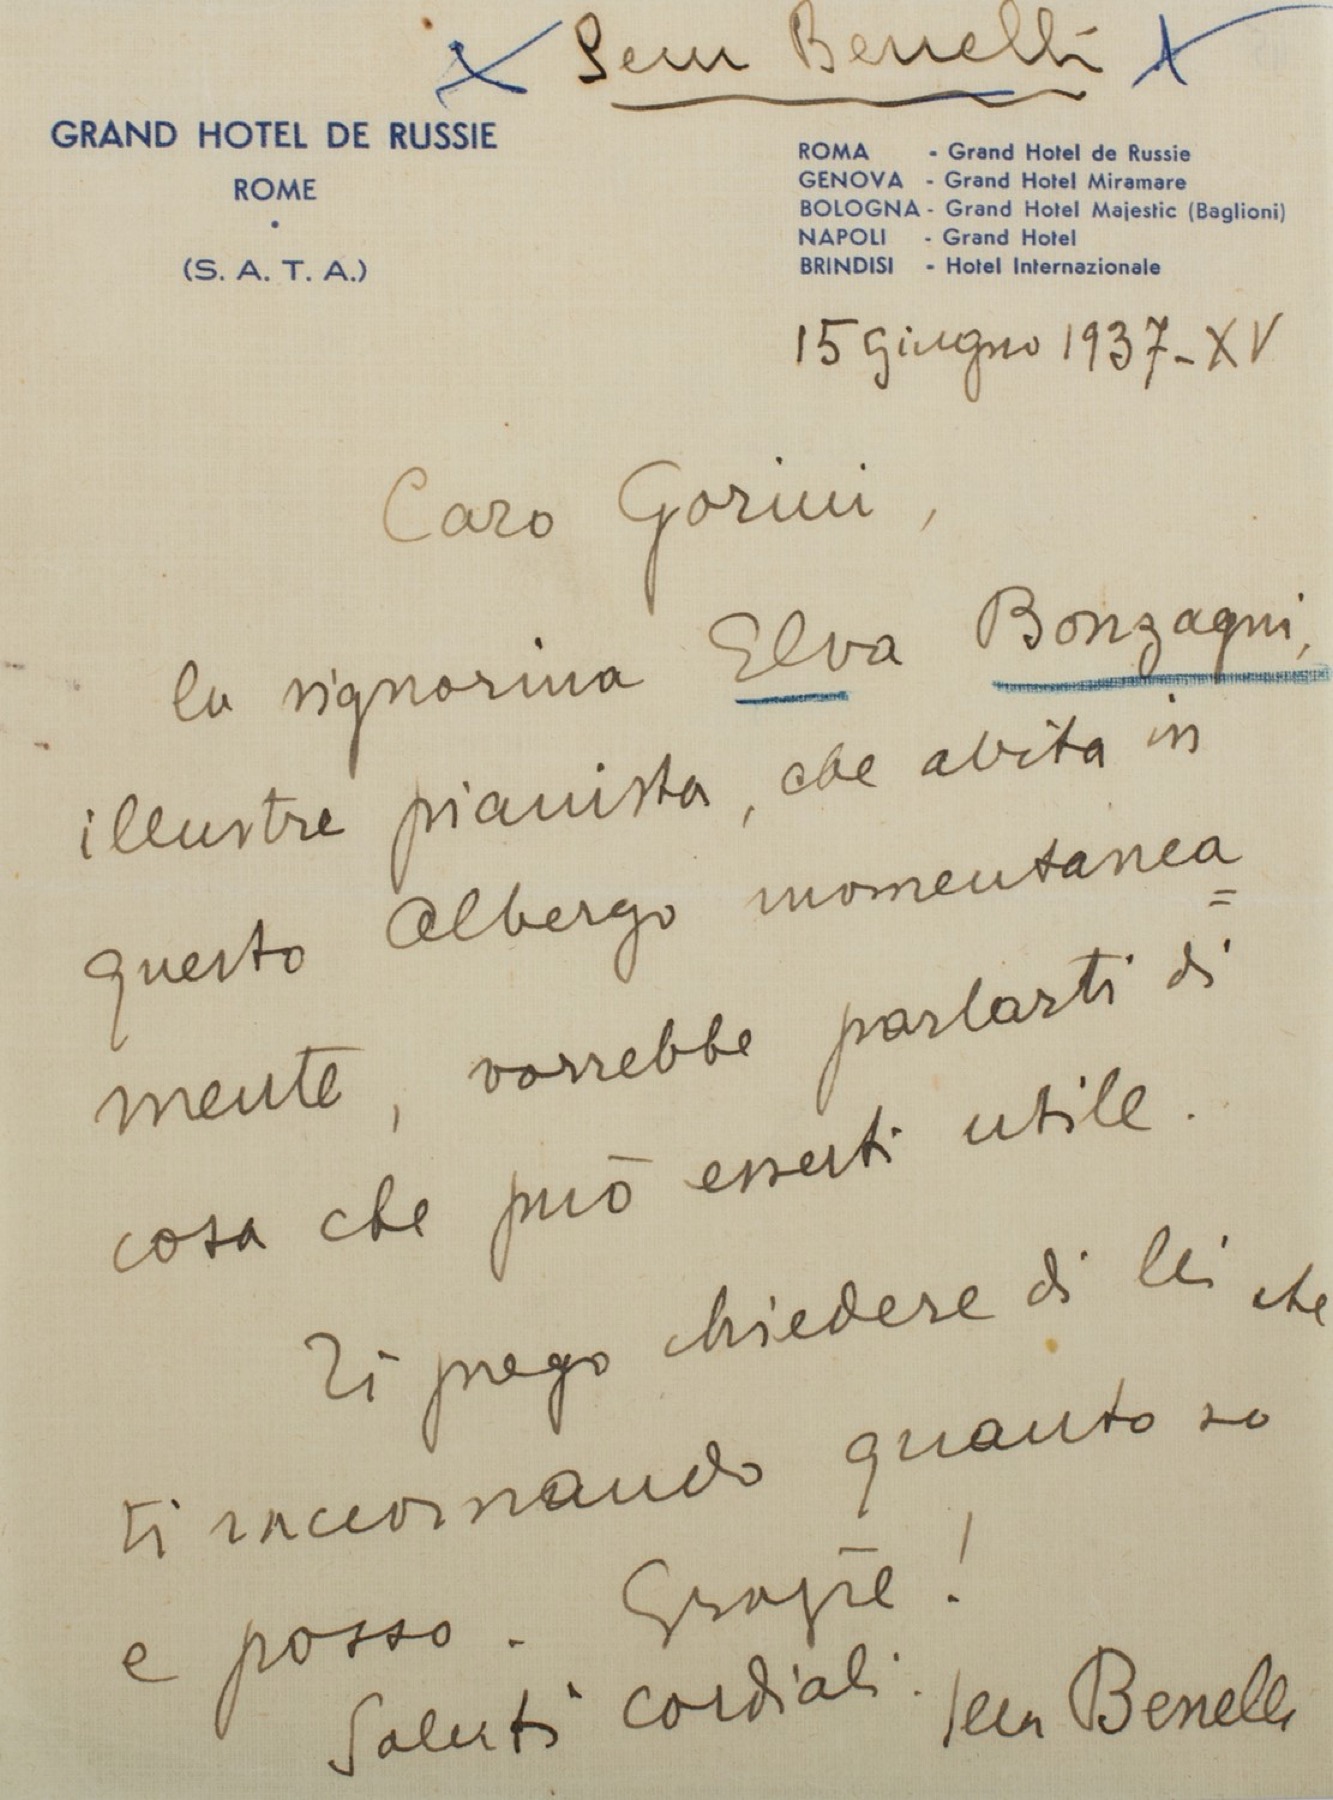 Sem Benelli
GRAND HOTEL DE RUSSIE
ROME
(S. A. T. A.)
ROMA - Grand Hotel de Russie
GENOVA - Grand Hotel Miramare
BOLOGNA - Grand Hotel Majestic (Baglioni)
NAPOLI - Grand Hotel
BRINDISI - Hotel Internazionale
15 Giugno 1937-XV
Caro Gorini,
la signorina Elva Bonzagni,
illustre pianista, che abita in
questo Albergo momentanea=
mente, vorrebbe parlarti di
cosa che può esserti utile.
Ti prego chiedere di lei che
ti raccomando quanto so
e posso. Grazie!
Saluti cordiali. Sem Benelli